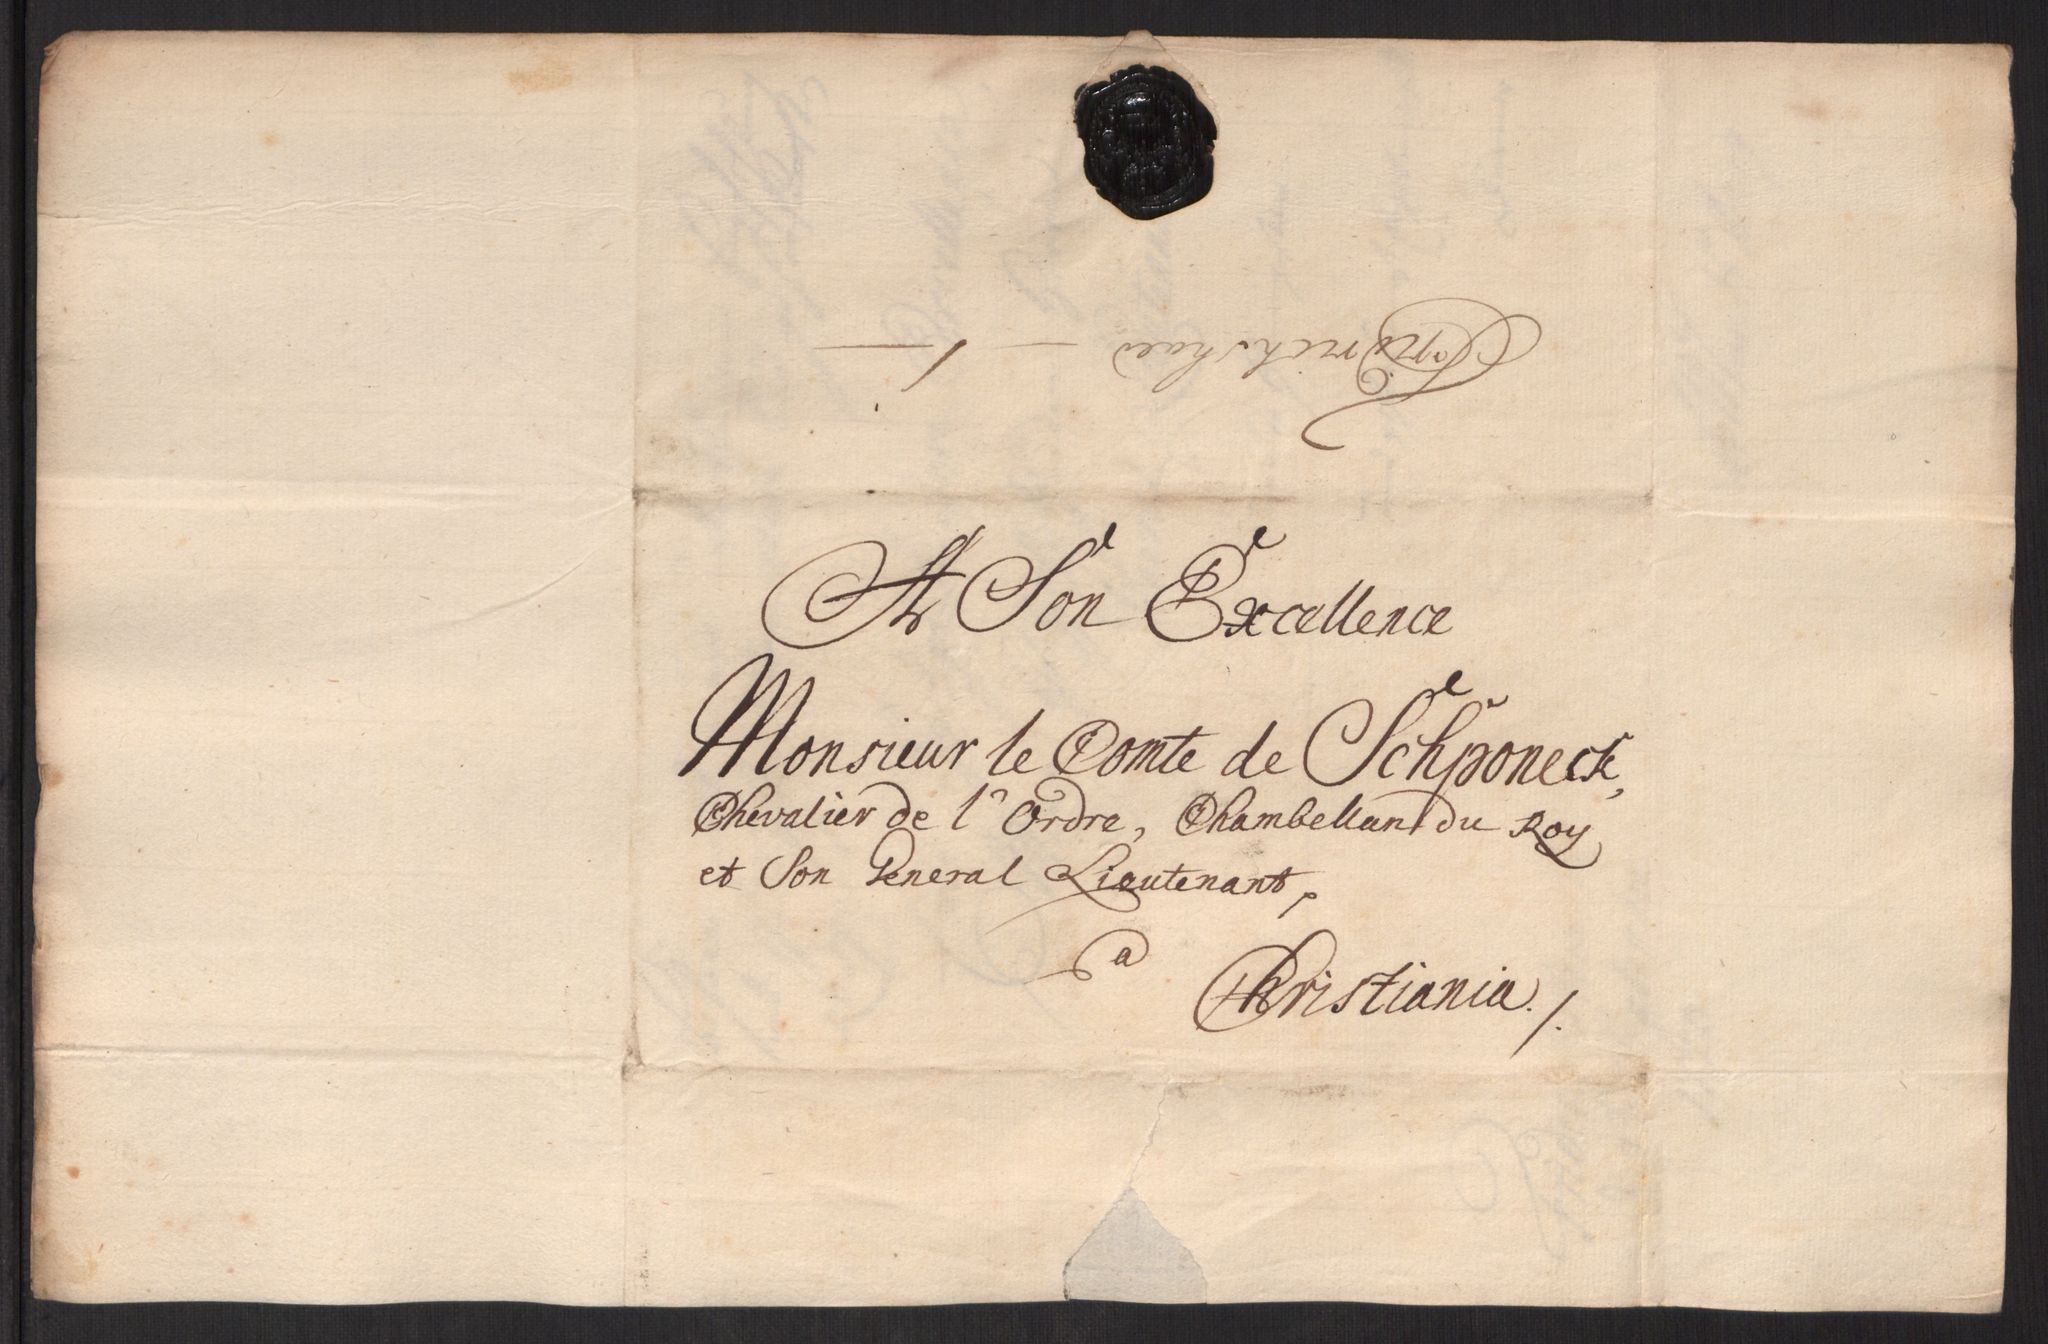 Friderichshald
A Son Excellence
Monsieur le Comte de Schponeck,
Chevalier de l'Ordre, Chambellan du Roy
et Son General Lieutenant,
a
Christiania./.